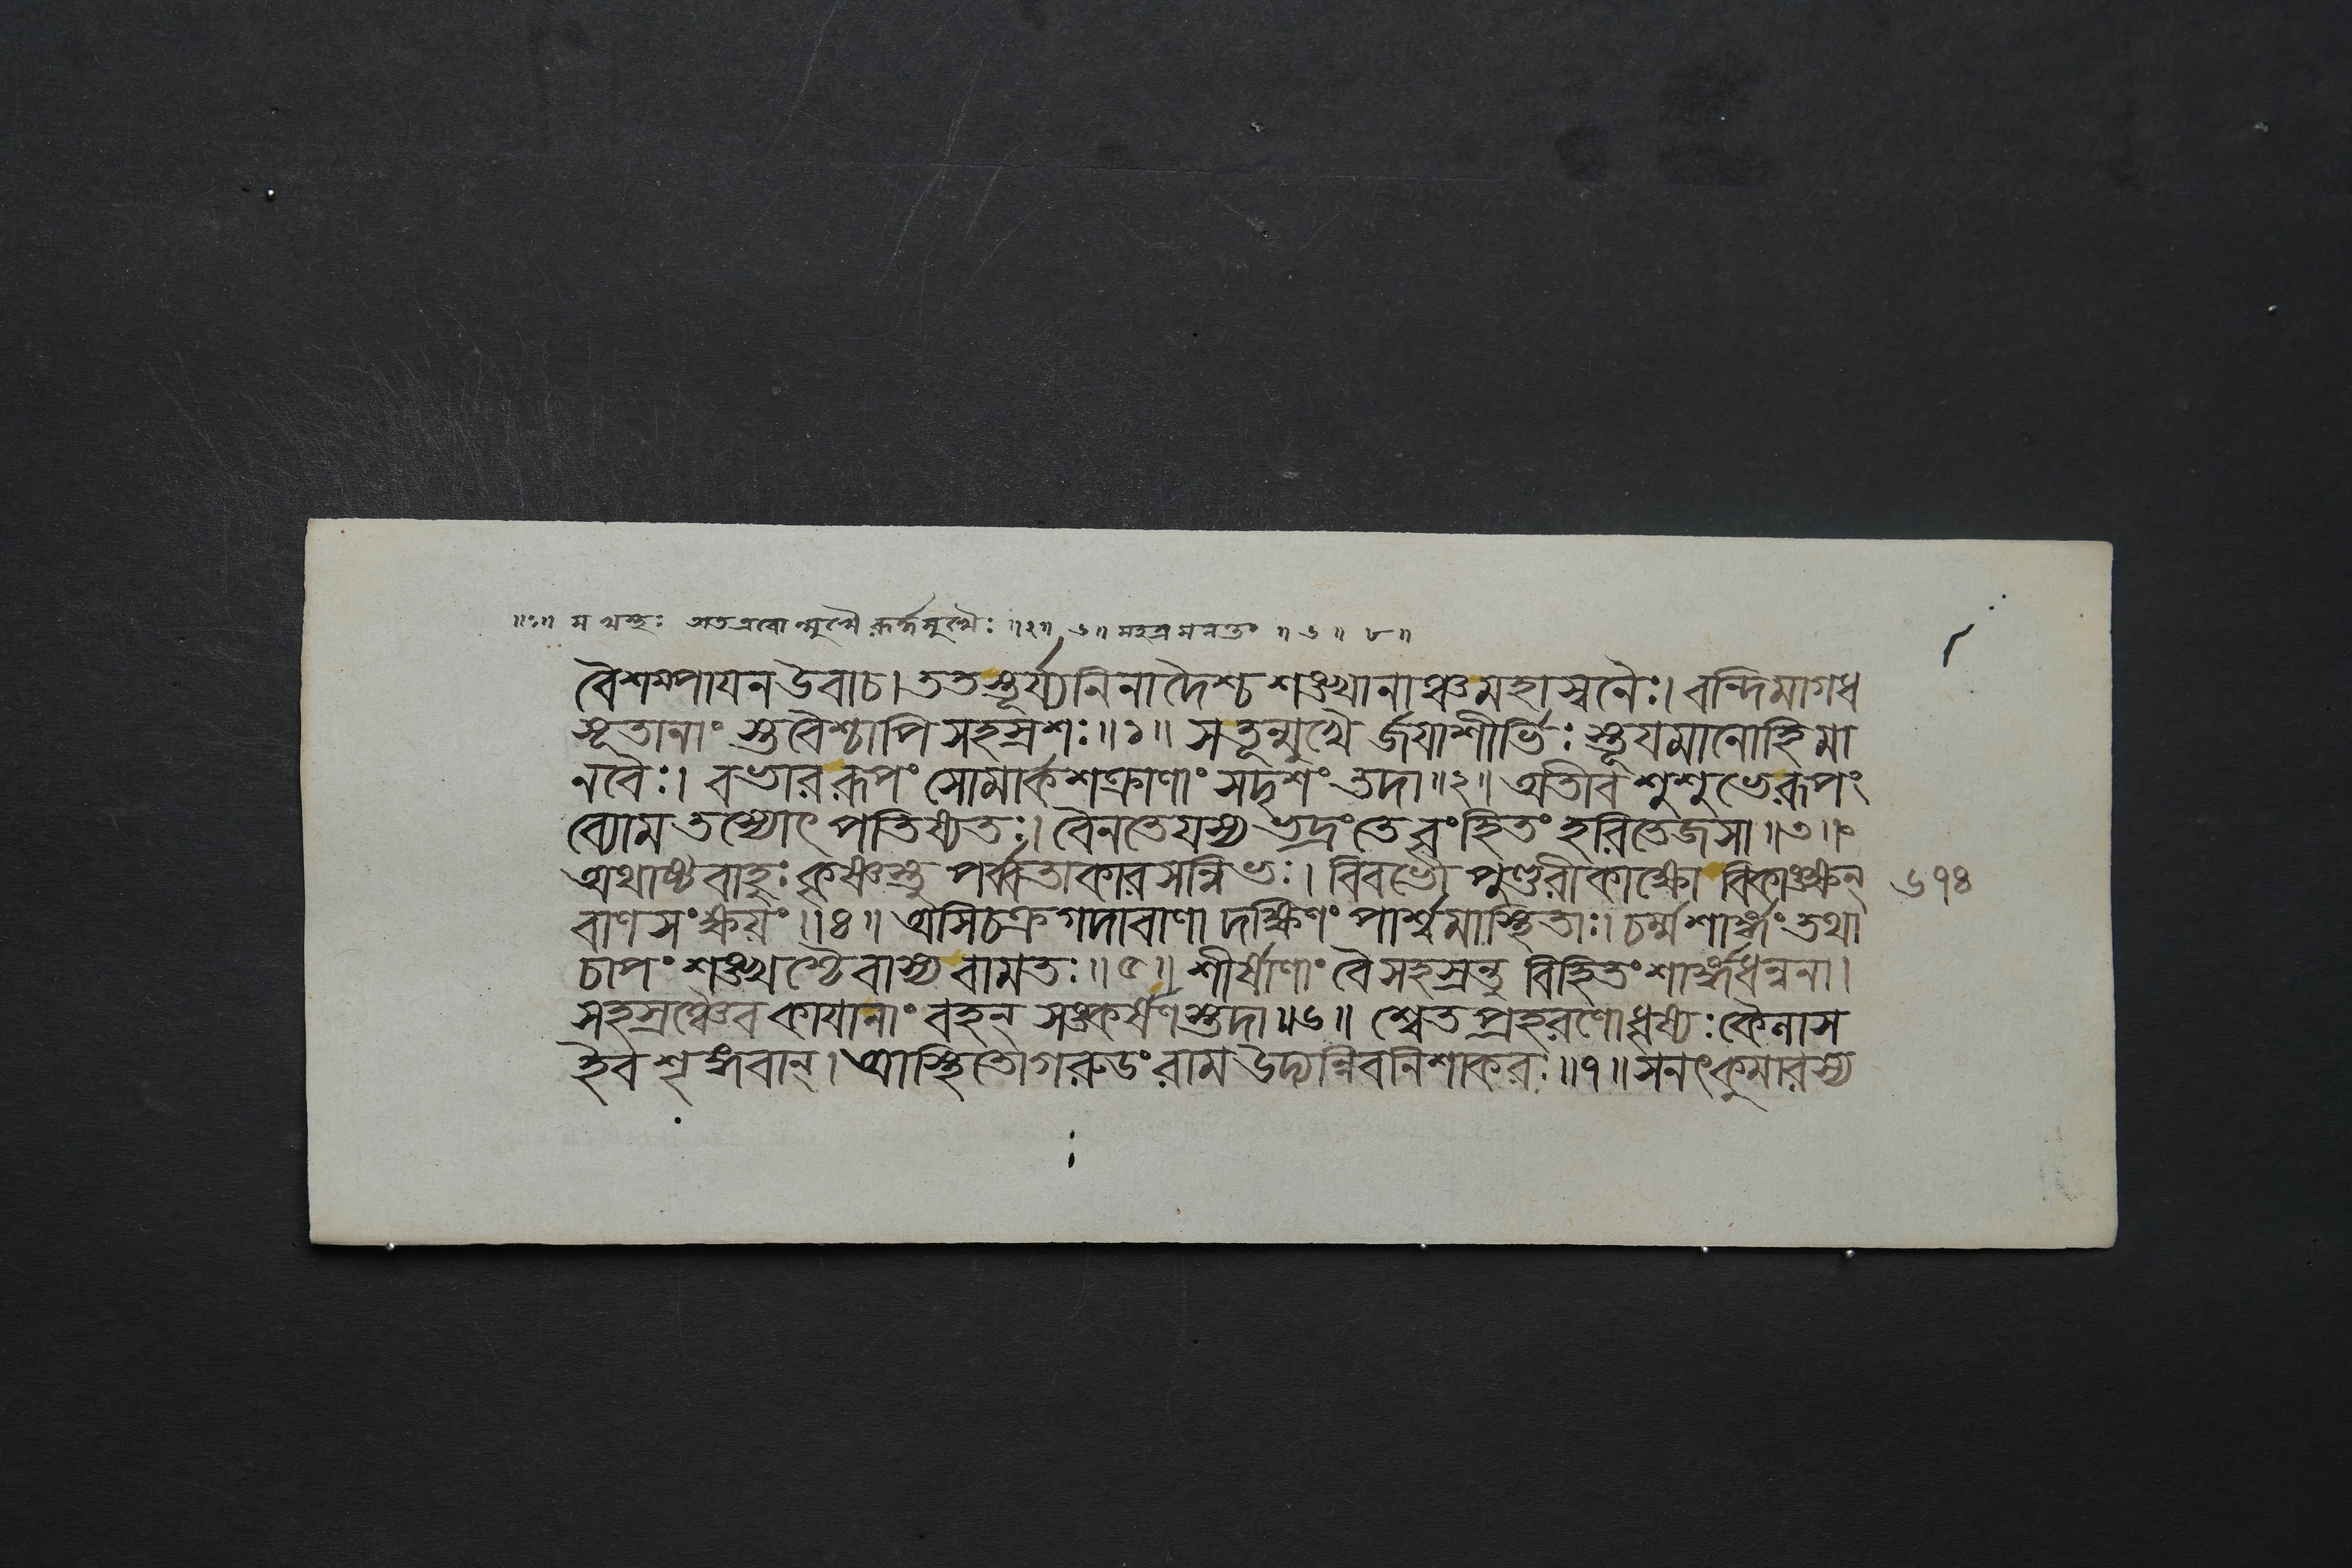 ॥১॥ म থস্থঃ অতএবোন্মুখৈ রূর্দ্ধমুখৈঃ ॥২॥ ৬॥ মহস্র মনন্তং ॥ ৬ ॥ ৮ ॥
বৈশম্পাযন উবাচ। ততস্তূর্য্যনিনাদৈশ্চ শঙ্খানাঞ্চ মহাস্বনৈঃ। বন্দিমাগধ
সূতানাং স্তবৈশ্চাপি সহস্রশঃ॥১॥ সতূন্মুখৈ র্জযাশীর্ভিঃ স্তূযমানোহি মা
নবৈঃ। বভার রূপং সোমার্কশক্রাণাং সদৃশং তদা॥২॥ অতীব শুশুভে রূপং
ব্যোম তস্যোৎপতিষ্যতঃ। বৈনতেযস্য ভদ্রং তে বৃংহিতং হরিতেজসা॥৩॥
অথাষ্টবাহুঃ কৃষ্ণস্তু পর্ব্বতাকারসন্নিভঃ। বিবভৌ পুণ্ডরীকাক্ষো বিকাঙ্ক্ষন্ ৬৭৪
বাণসংক্ষয়ং॥৪॥ অসিচক্রগদাবাণা দক্ষিণং পার্শ্বমাস্থিতাঃ। চর্ম্ম শার্ঙ্গং তথা
চাপং শঙ্খশ্চৈবাস্য বামতঃ॥৫॥ শীর্ষাণাং বৈ সহস্রন্তু বিহিতং শার্ঙ্গধন্বনা।
সহস্রঞ্চৈব কাযানাং বহন্ সঙ্কর্ষণস্তদা॥৬॥ শ্বেতপ্রহরণোধৃষ্যঃ কৈলাস
ইব শৃঙ্গবান্। আস্থিতো গরুডং রাম উদ্যন্নিব নিশাকরঃ॥৭॥ সনৎকুমারস্য